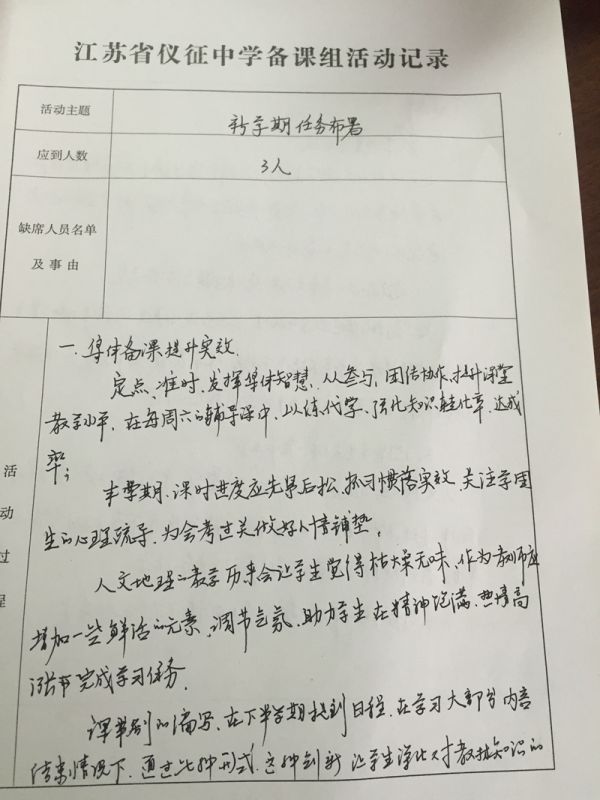 江苏省仪征中学备课组活动记录
活动主题
新学期任务布署
应到人数
3人
缺席人员名单
及事由
活
动
过
程
一. 集体备课提升实效.
定点、准时、发挥集体智慧、从参与、团结协作、提升课堂
教学水平、在每周六的辅导课中、以练代学、强化知识 化率、达成
率；
本学期、课时进度应先紧后松、抓习惯落实效、关注学困
生的心理疏导、为会考过关做好 情铺垫.
人文地理的教学历来会让学生觉得枯燥无味、作为教师应
增加一些鲜活的元素、调节气氛、助力学生在精神饱满、热情高
涨中完成学习任务.
课 的编写、在下半学期提到日程、在学习大部分内容
结束情况下、通过此种形式、这种 让学生 教材知识的